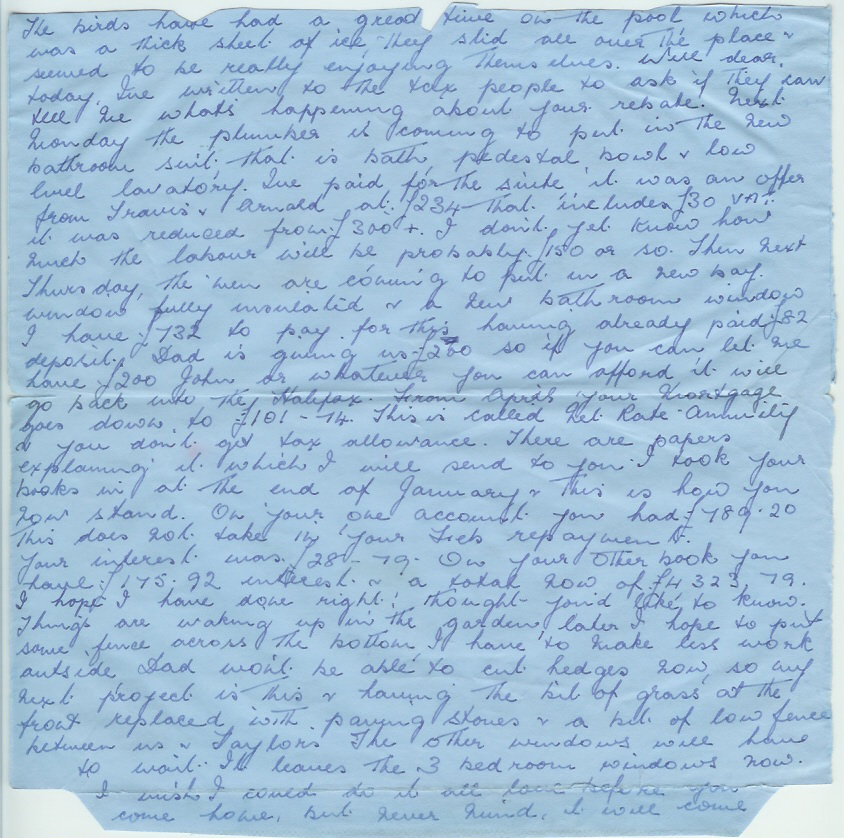 The birds have had a great time on the pool which
was a thick sheet of ice they slid all over the place &
seemed to be really enjoying themselves. Well dear,
today. Ive written to the tax people to ask if they can
tell me whats happening about your rebate. Next
Monday the plumber is coming to put in the new
bathroom suit. that is bath pedestal bowl & low
level lavatory. Ive paid for the suite it was an offer
from Travis & Arnold at £234 that includes £30 VAT.
it was reduced from £300+. I don't yet know how
much the labour will be probably £150 or so. Then next
Thursday, the men are coming to put in a new bay.
window fully insulated & a new bathroom window
I have £732 to pay for this having already paid £82
deposit. Dad is giving us £200 so if you can let me
have £200 John or whatever you can afford it will
go back into the Halifax. From April your Mortgage
goes down to £101-74. This is called Net Rate Annuity
& you don't get tax allowance. There are papers
explaining it which I will send to you. I took your
books in at the end of January & this is how you
now stand. On your one account you had £789.20
this does not take in your repayment.
Your interest was £28-79. On your other book you
have £175.92 interest & a total now of £4323.79.
I hope I have done right! thought you'd like to know.
Things are waking up in the garden, later I hope to put
some fence across the bottom I have to make less work
outside Dad won't be able to cut hedges now, so my
next project is this & having the bit of grass at the
front replaced with paving stones & a bit of low fence
between us & Taylors The other windows will have
to wait. It leaves the 3 bedroom windows now.
I wish I could do it all before you
come home, but never mind, it will come